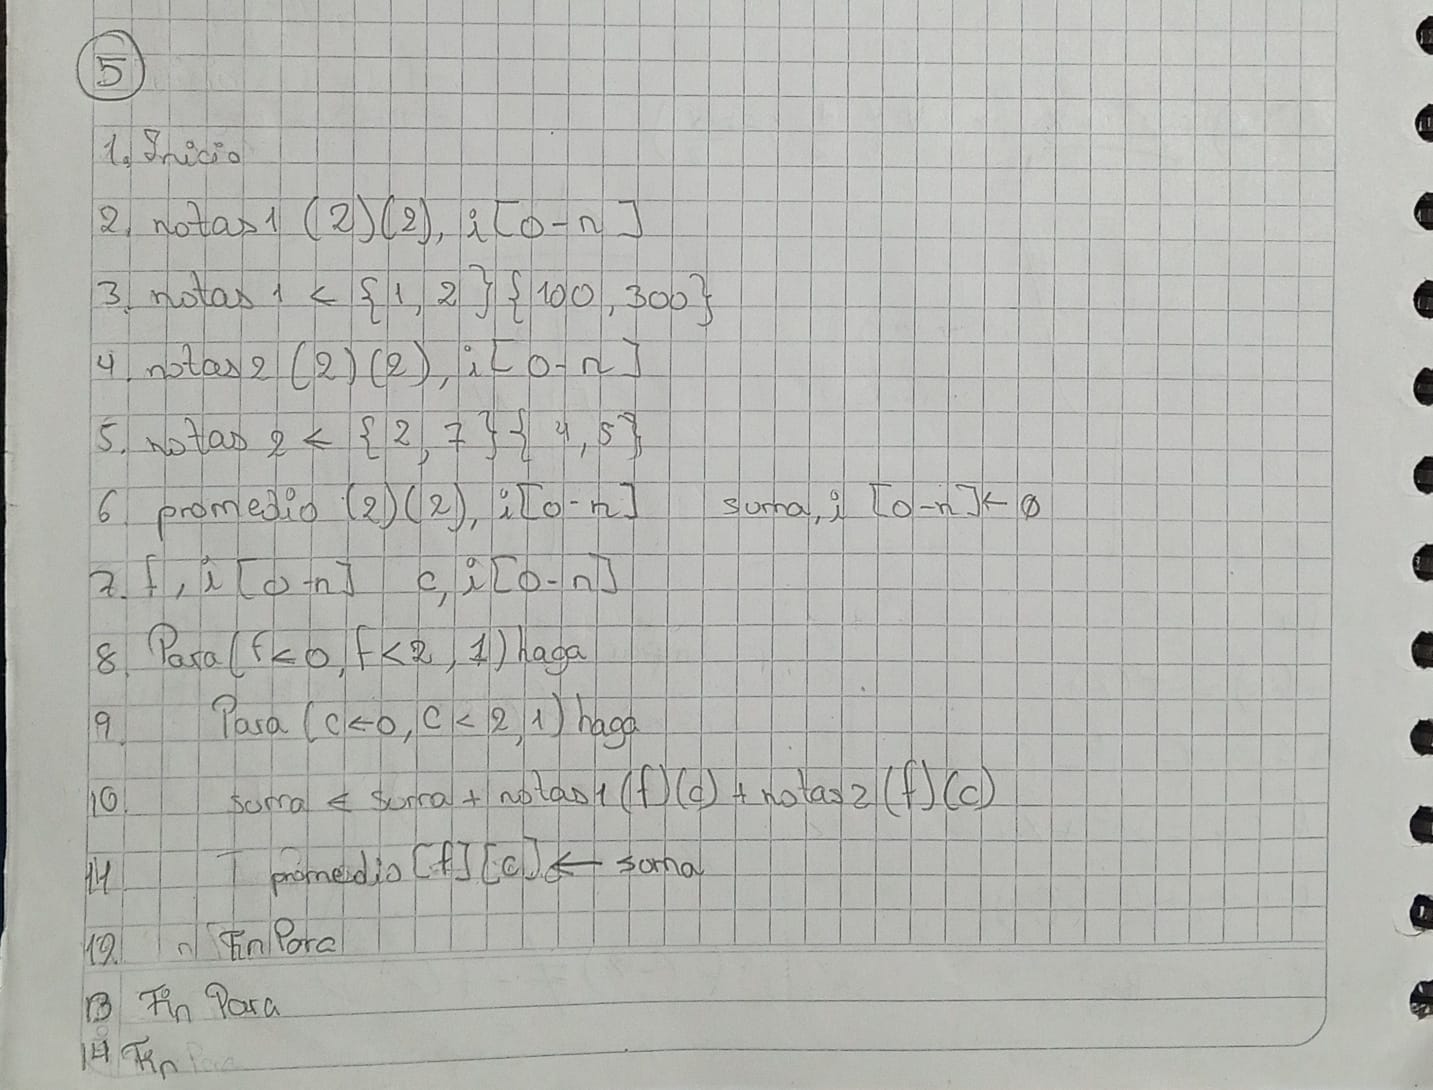 5
1. Inicio
2. notas1 (2)(2), i[0-n]
3. notas1 < {1, 2} {100, 300}
4. notas2 (2)(2), i[0-n]
5. notas2 ← {2, 7} {4, 5}
6 promedio (2)(2), i[0-n] suma, i [0-n] ← 0
7. f, i[0-n] c, i[0-n]
8. Para (f←0, f<2, 1) haga
9. Para (c←0, c<2, 1) haga
10. suma ← suma + notas1 (f)(c) + notas2 (f)(c)
11 promedio [f][c] ← soma
12. Fin Para
13 Fin Para
14 Fin